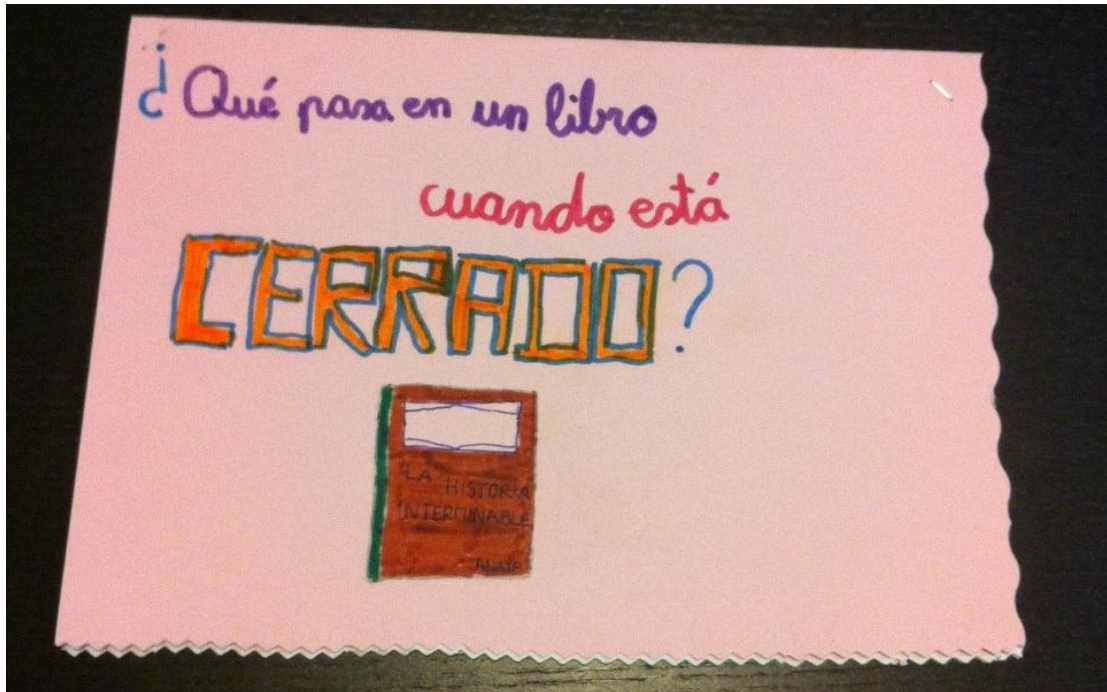 ¿Qué pasa en un libro
cuando está
CERRADO?
"LA HISTORIA
INTERMINABLE
ANAYA